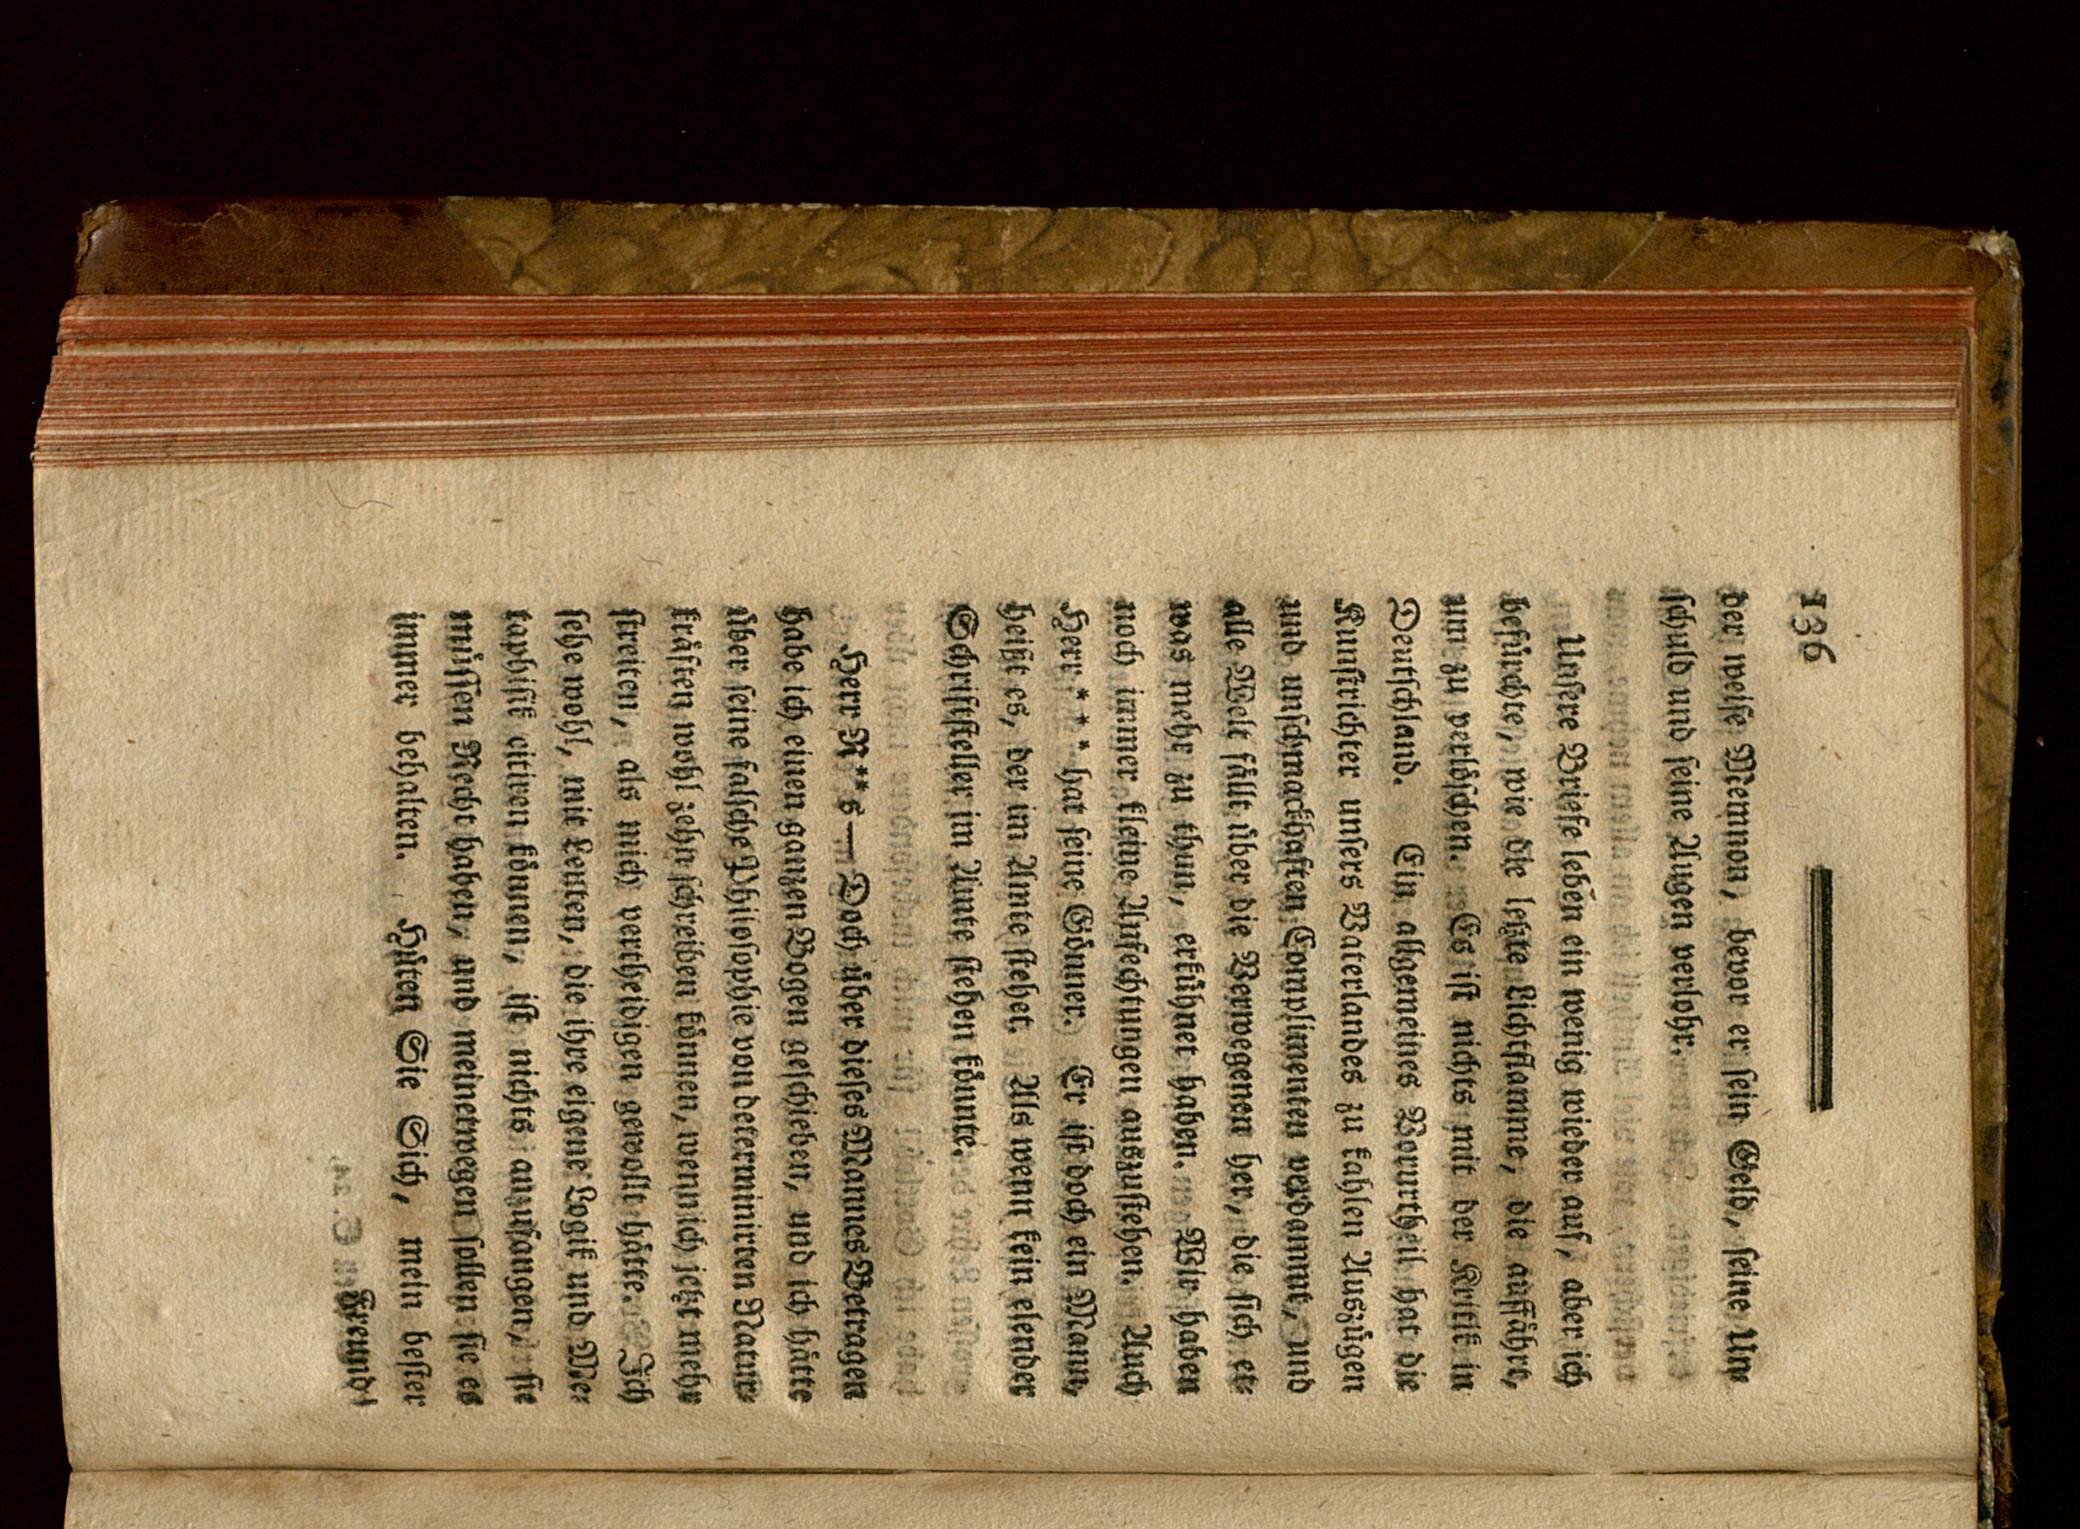 136
der weise Memnon, bevor er sein Geld, seine Un-
schuld und seine Augen verlohr.
Unsere Briefe leben ein wenig wieder auf, aber ich
befürchte, wie die letzte Lichtflamme, die auffährt,
um zu verlöschen. Es ist nichts mit der Kritik in
Deutschland. Ein allgemeines Vorurtheil hat die
Kunstrichter unsers Vaterlandes zu kahlen Auszügen
und unschmackhaften Complimenten verdammt, und
alle Welt fällt über die Verwegenen her, die sich et-
was mehr zu thun, erkühnet haben. Wir haben
noch immer kleine Anfechtungen auszustehen. Auch
Herr * * * hat seine Gönner. Er ist doch ein Mann,
heißt es, der im Amte stehet. Als wenn kein elender
Schriftsteller im Amte stehen könnte.
Herr R**s — Doch über dieses Mannes Betragen
habe ich einen ganzen Bogen geschrieben, und ich hätte
über seine falsche Philosophie von determinirten Natur-
kräften wohl zehn schreiben können, wenn ich jetzt mehr
streiten, als mich vertheidigen gewollt hätte. Ich
sehe wohl, mit Leuten, die ihre eigene Logik und Me-
taphisik citiren können, ist nichts anzufangen, sie
müssen Recht haben, und meinetwegen sollen sie es
immer behalten. Hüten Sie Sich, mein bester
Freund!